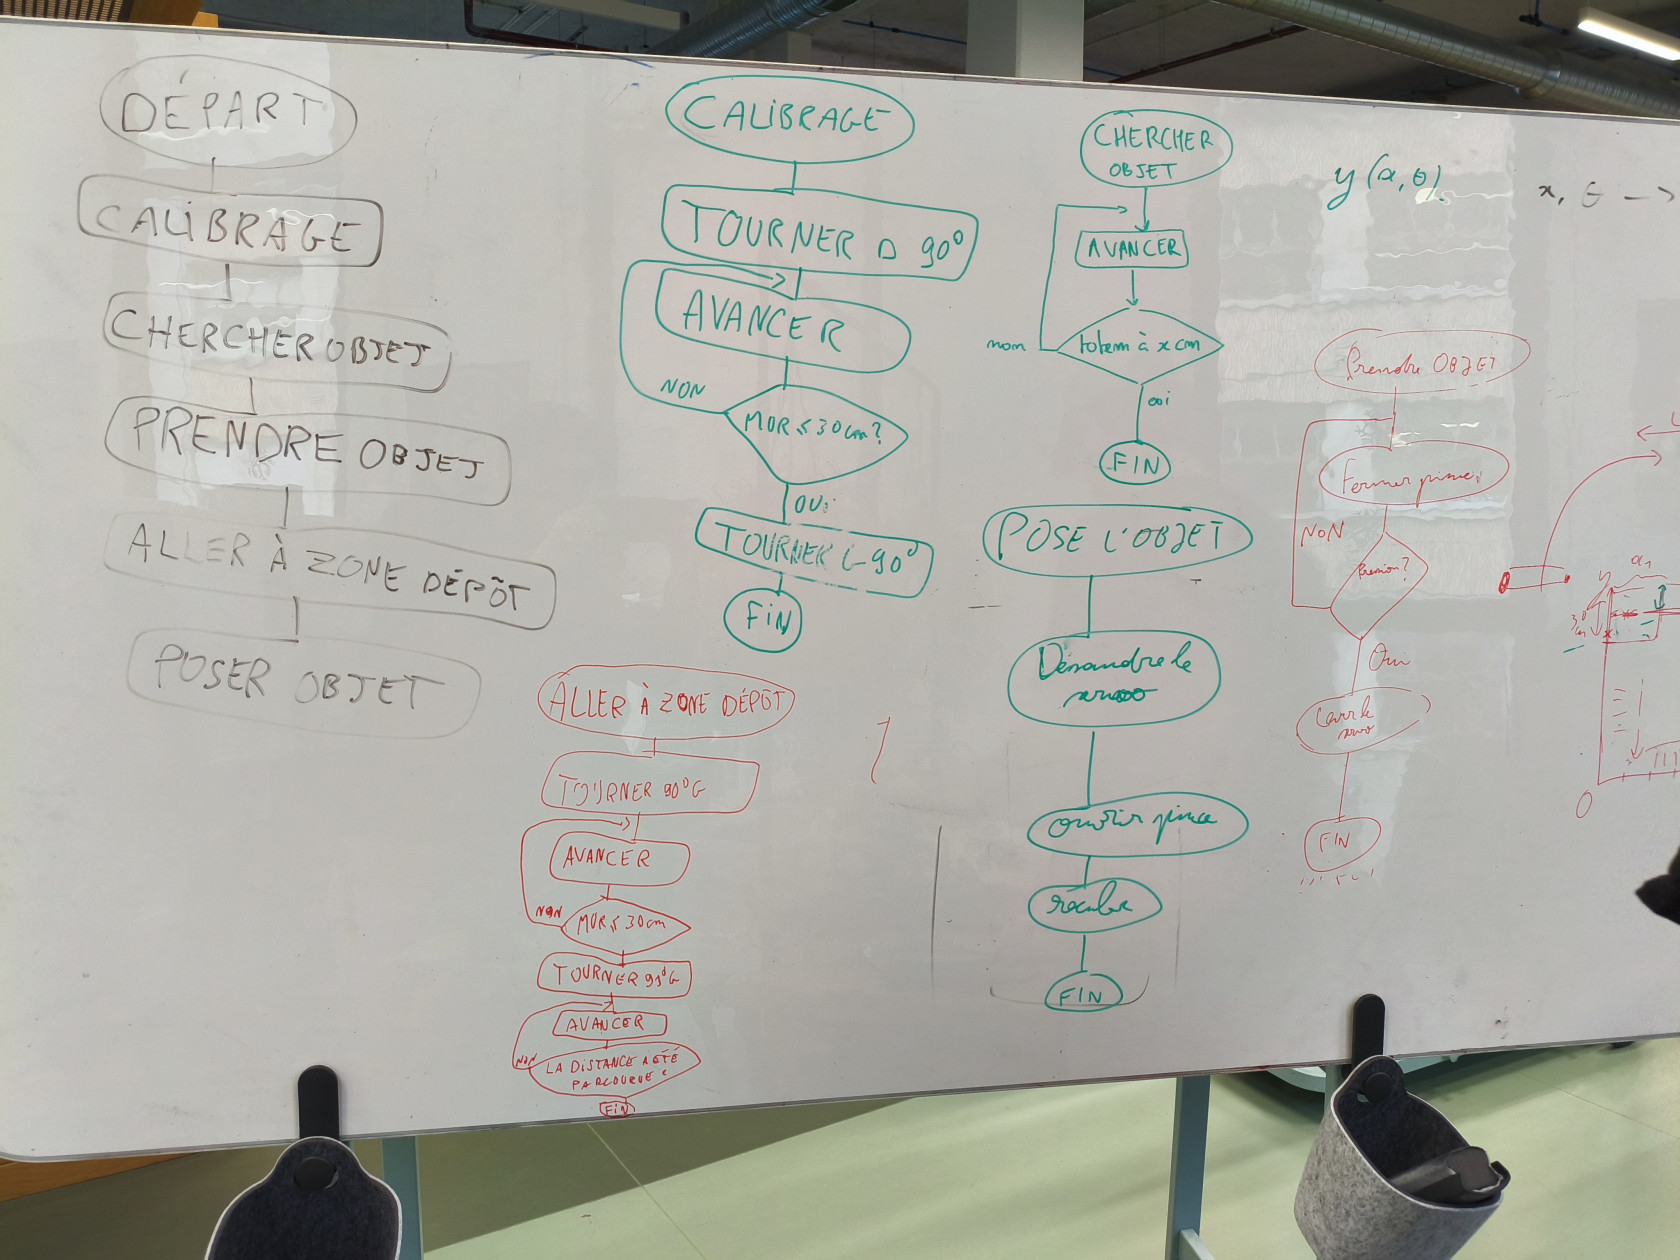 DÉPART
CALIBRAGE
CHERCHER OBJET
PRENDRE OBJET
ALLER À ZONE DÉPÔT
POSER OBJET
CALIBRAGE
TOURNER D 90°
AVANCER
NON
MUR ≤ 30cm?
OUi
TOURNER G 90°
FiN
ALLER À ZONE DÉPÔT
TOURNER 90° G
AVANCER
NON
MUR ≤ 30cm
TOURNER 90° G
AVANCER
NON
LA DISTANCE A ÉTÉ
PARCOURUE ?
FiN
CHERCHER
OBJET
AVANCER
non
totem à x cm
oui
FIN
POSE L'OBJET
Descendre le
servo
Ouvrir pince
reculer
FIN
y(x, θ)
x, θ →
Prendre OBJET
Fermer pince
NON
Pression?
Oui
Lever le
servo
FIN
y
30
cm
0